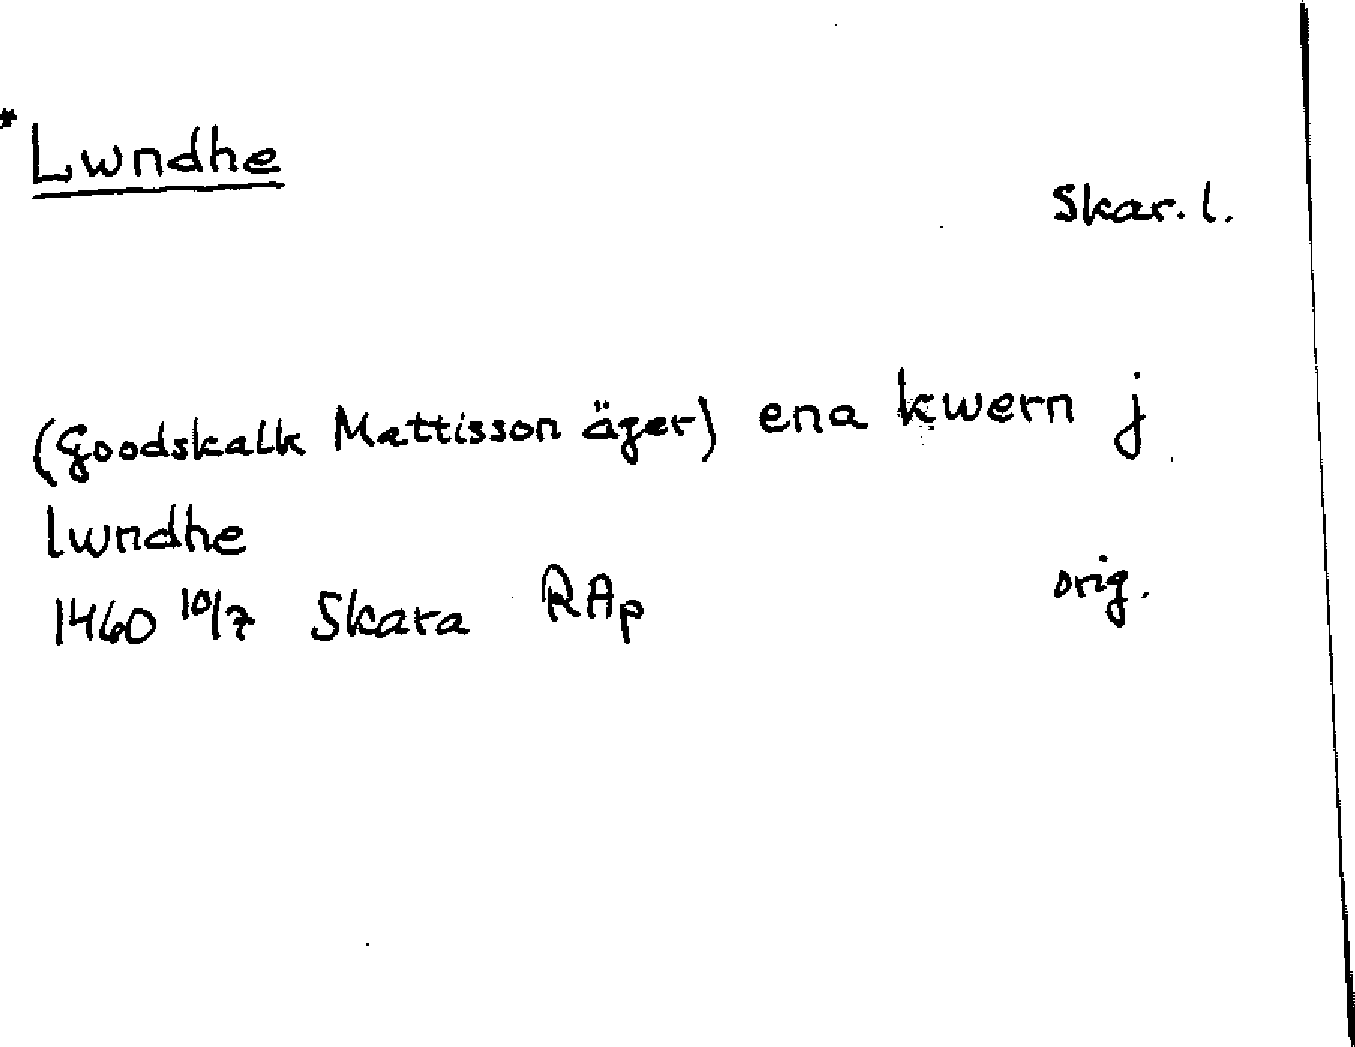 *Lwndhe
Skar. l.
(Goodskalk Mattisson äger) ena kwern j
lwndhe
1460 10/7 Skara RAp orig.